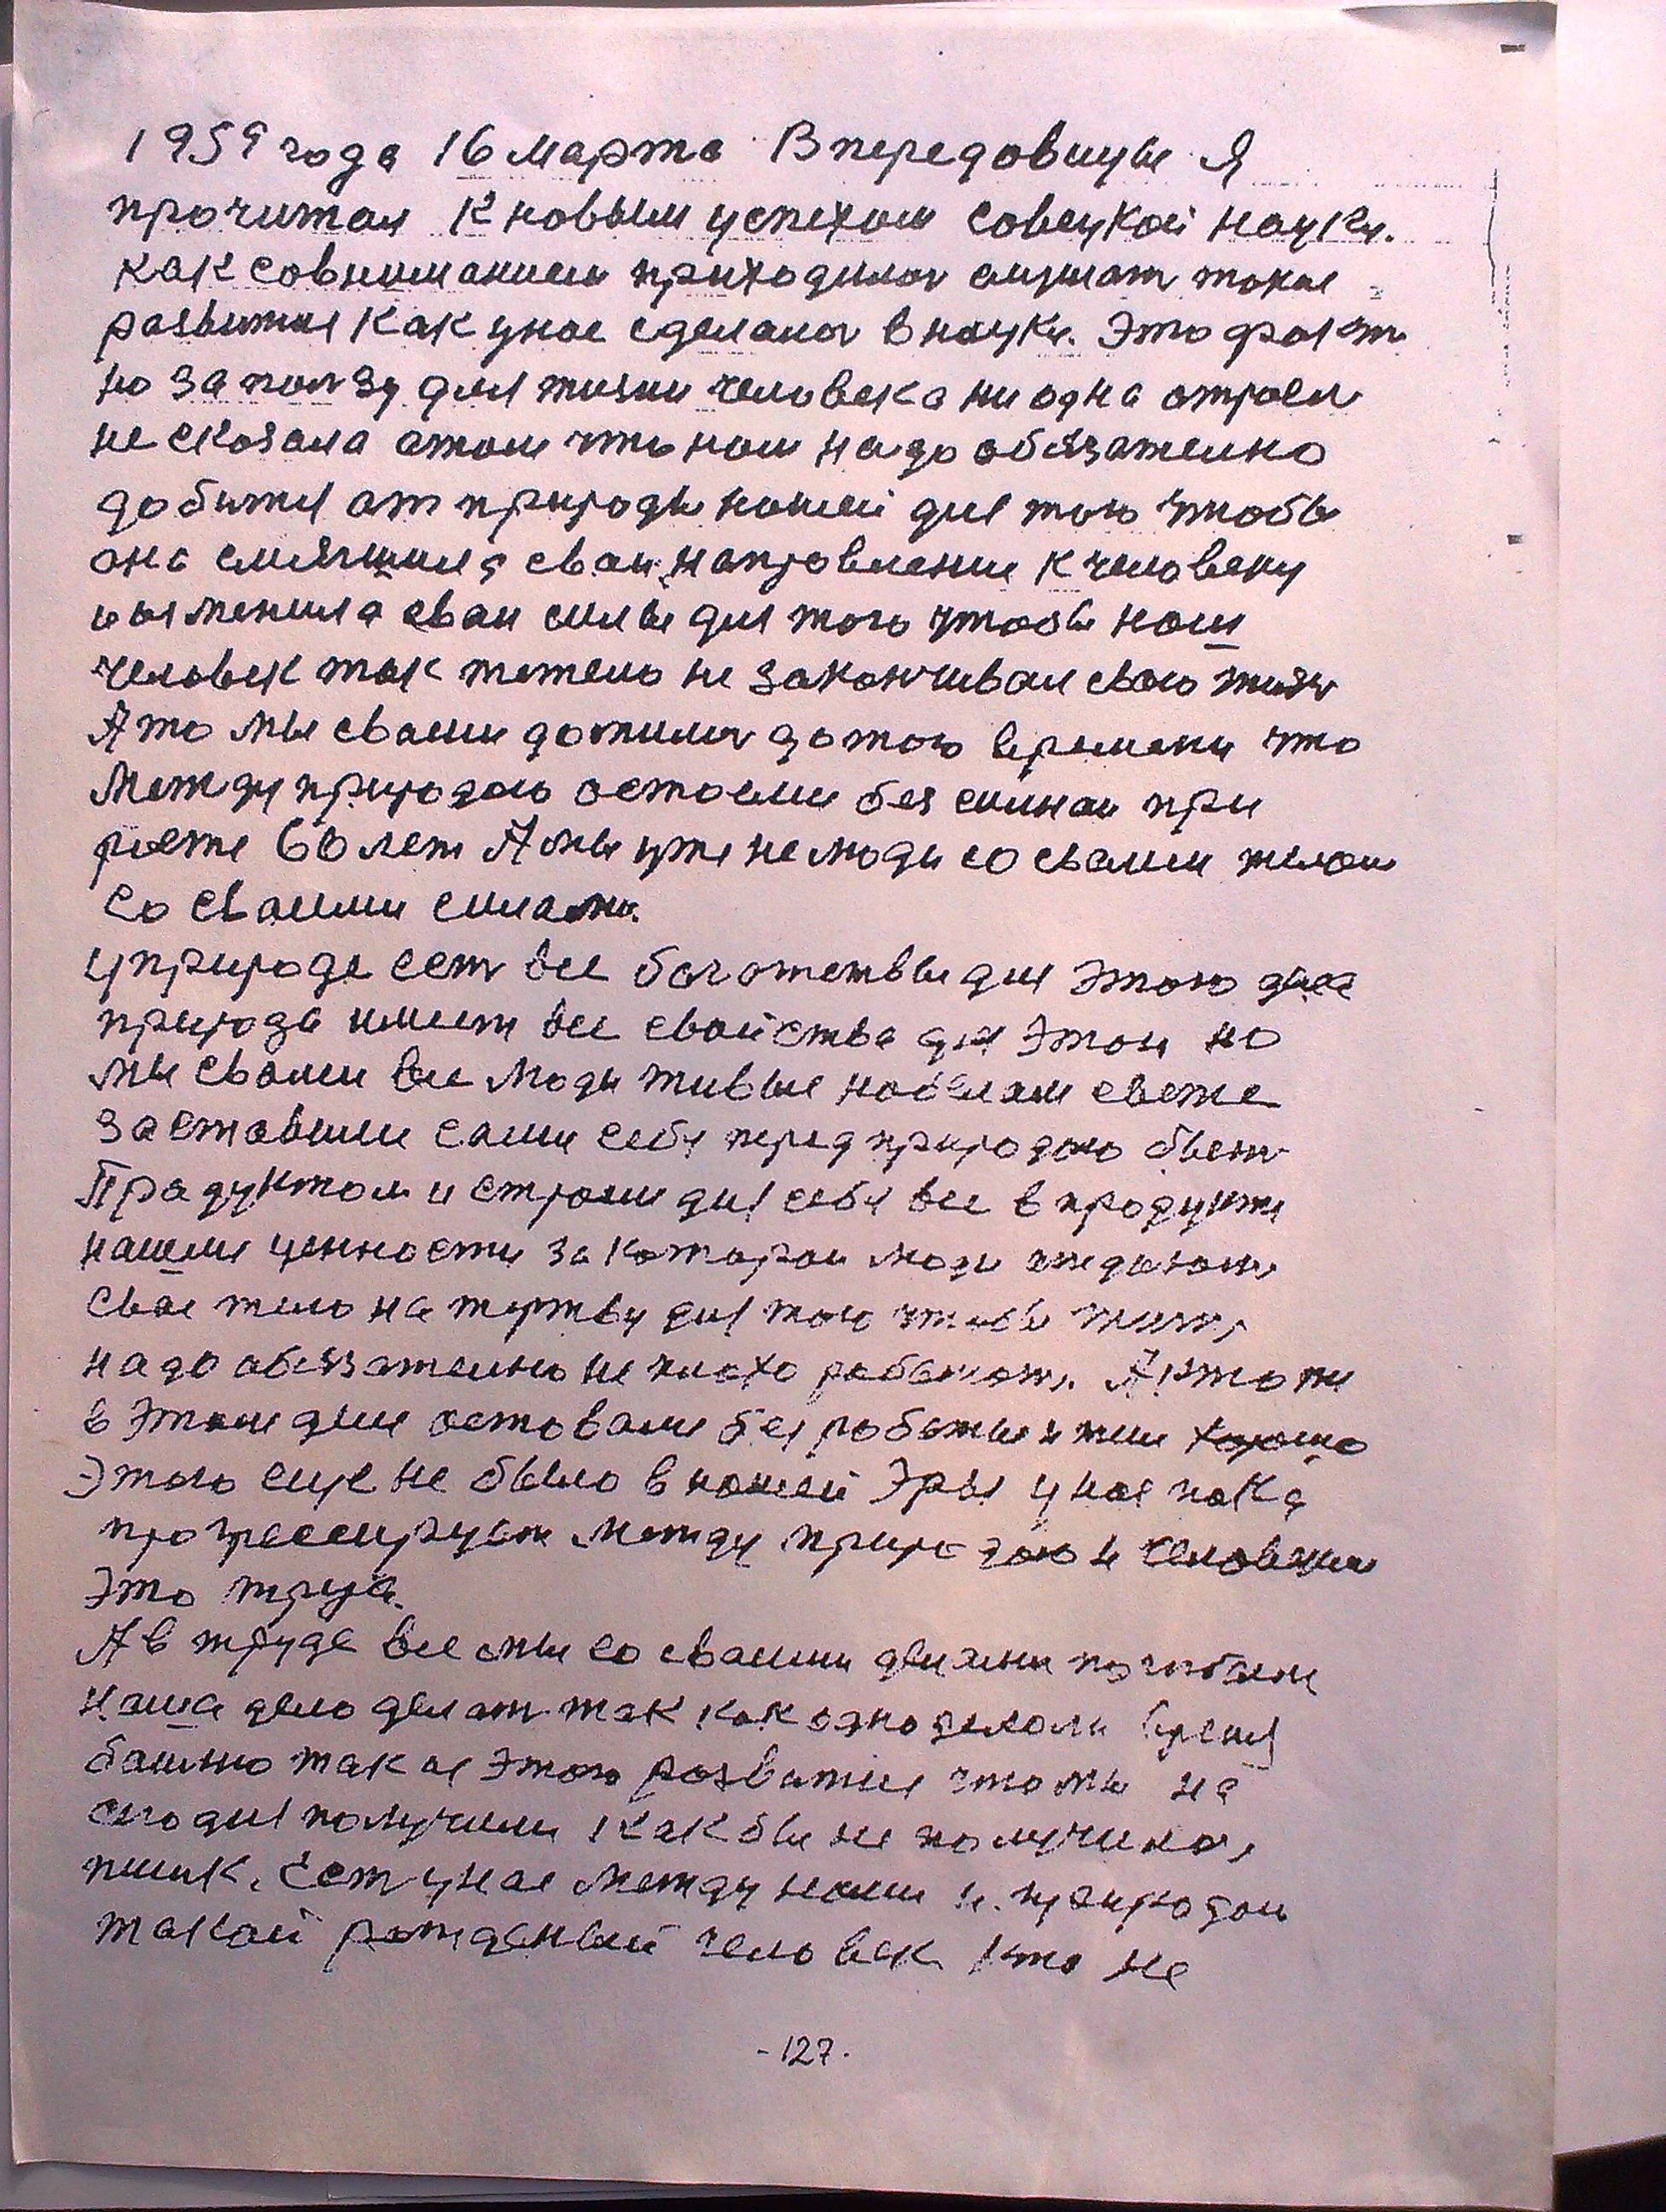 1959 года 16 марта В передовицы я
прочитал К новым успехом Совецкой науки.
как совниманием приходилос слушат такие
развития как у нас сделанос в науки. Это факт
но за ползу для жизни человека ни одна отрасл
не сказала атом что нам надо обязателно
добится от природы нашей для того чтобы
она смягчила сваи направлении к человеку
изменила сваи силы для того чтобы наш
человек так тежело не заканчивал сваю жизн
А то мы сваим дожилис до того времени что
Между природою остаемс без силнои при
росте 60 лет А мы уже не люди со сваим телом
со сваими силами.
у природе ест все богатствы для этого
природа имеет все свойства для этом но
мы сваими все люди живые на белам свете
заставили сами себя перед природою быт
Прадуктом и строим для себя все в продукте
нашие ценности за каторои люди отдают
свае тело на жертву для того чтобы жит,
надо обязателно не плохо работат. А кто же
в этом дни оставалс без работы и жил хорошо
Этого еще не было в нашей Эры у нас пока
прогрессирует между природою и человеком
это труд.
А в труде все мы со сваими погибаем
наша дело делат так как оно делалос время
башно такая этого развития что мы на
сегодня получили как бы не получилос,
пшик. Ест у нас между нами и природои
такой рожденый человек кто не
-127-